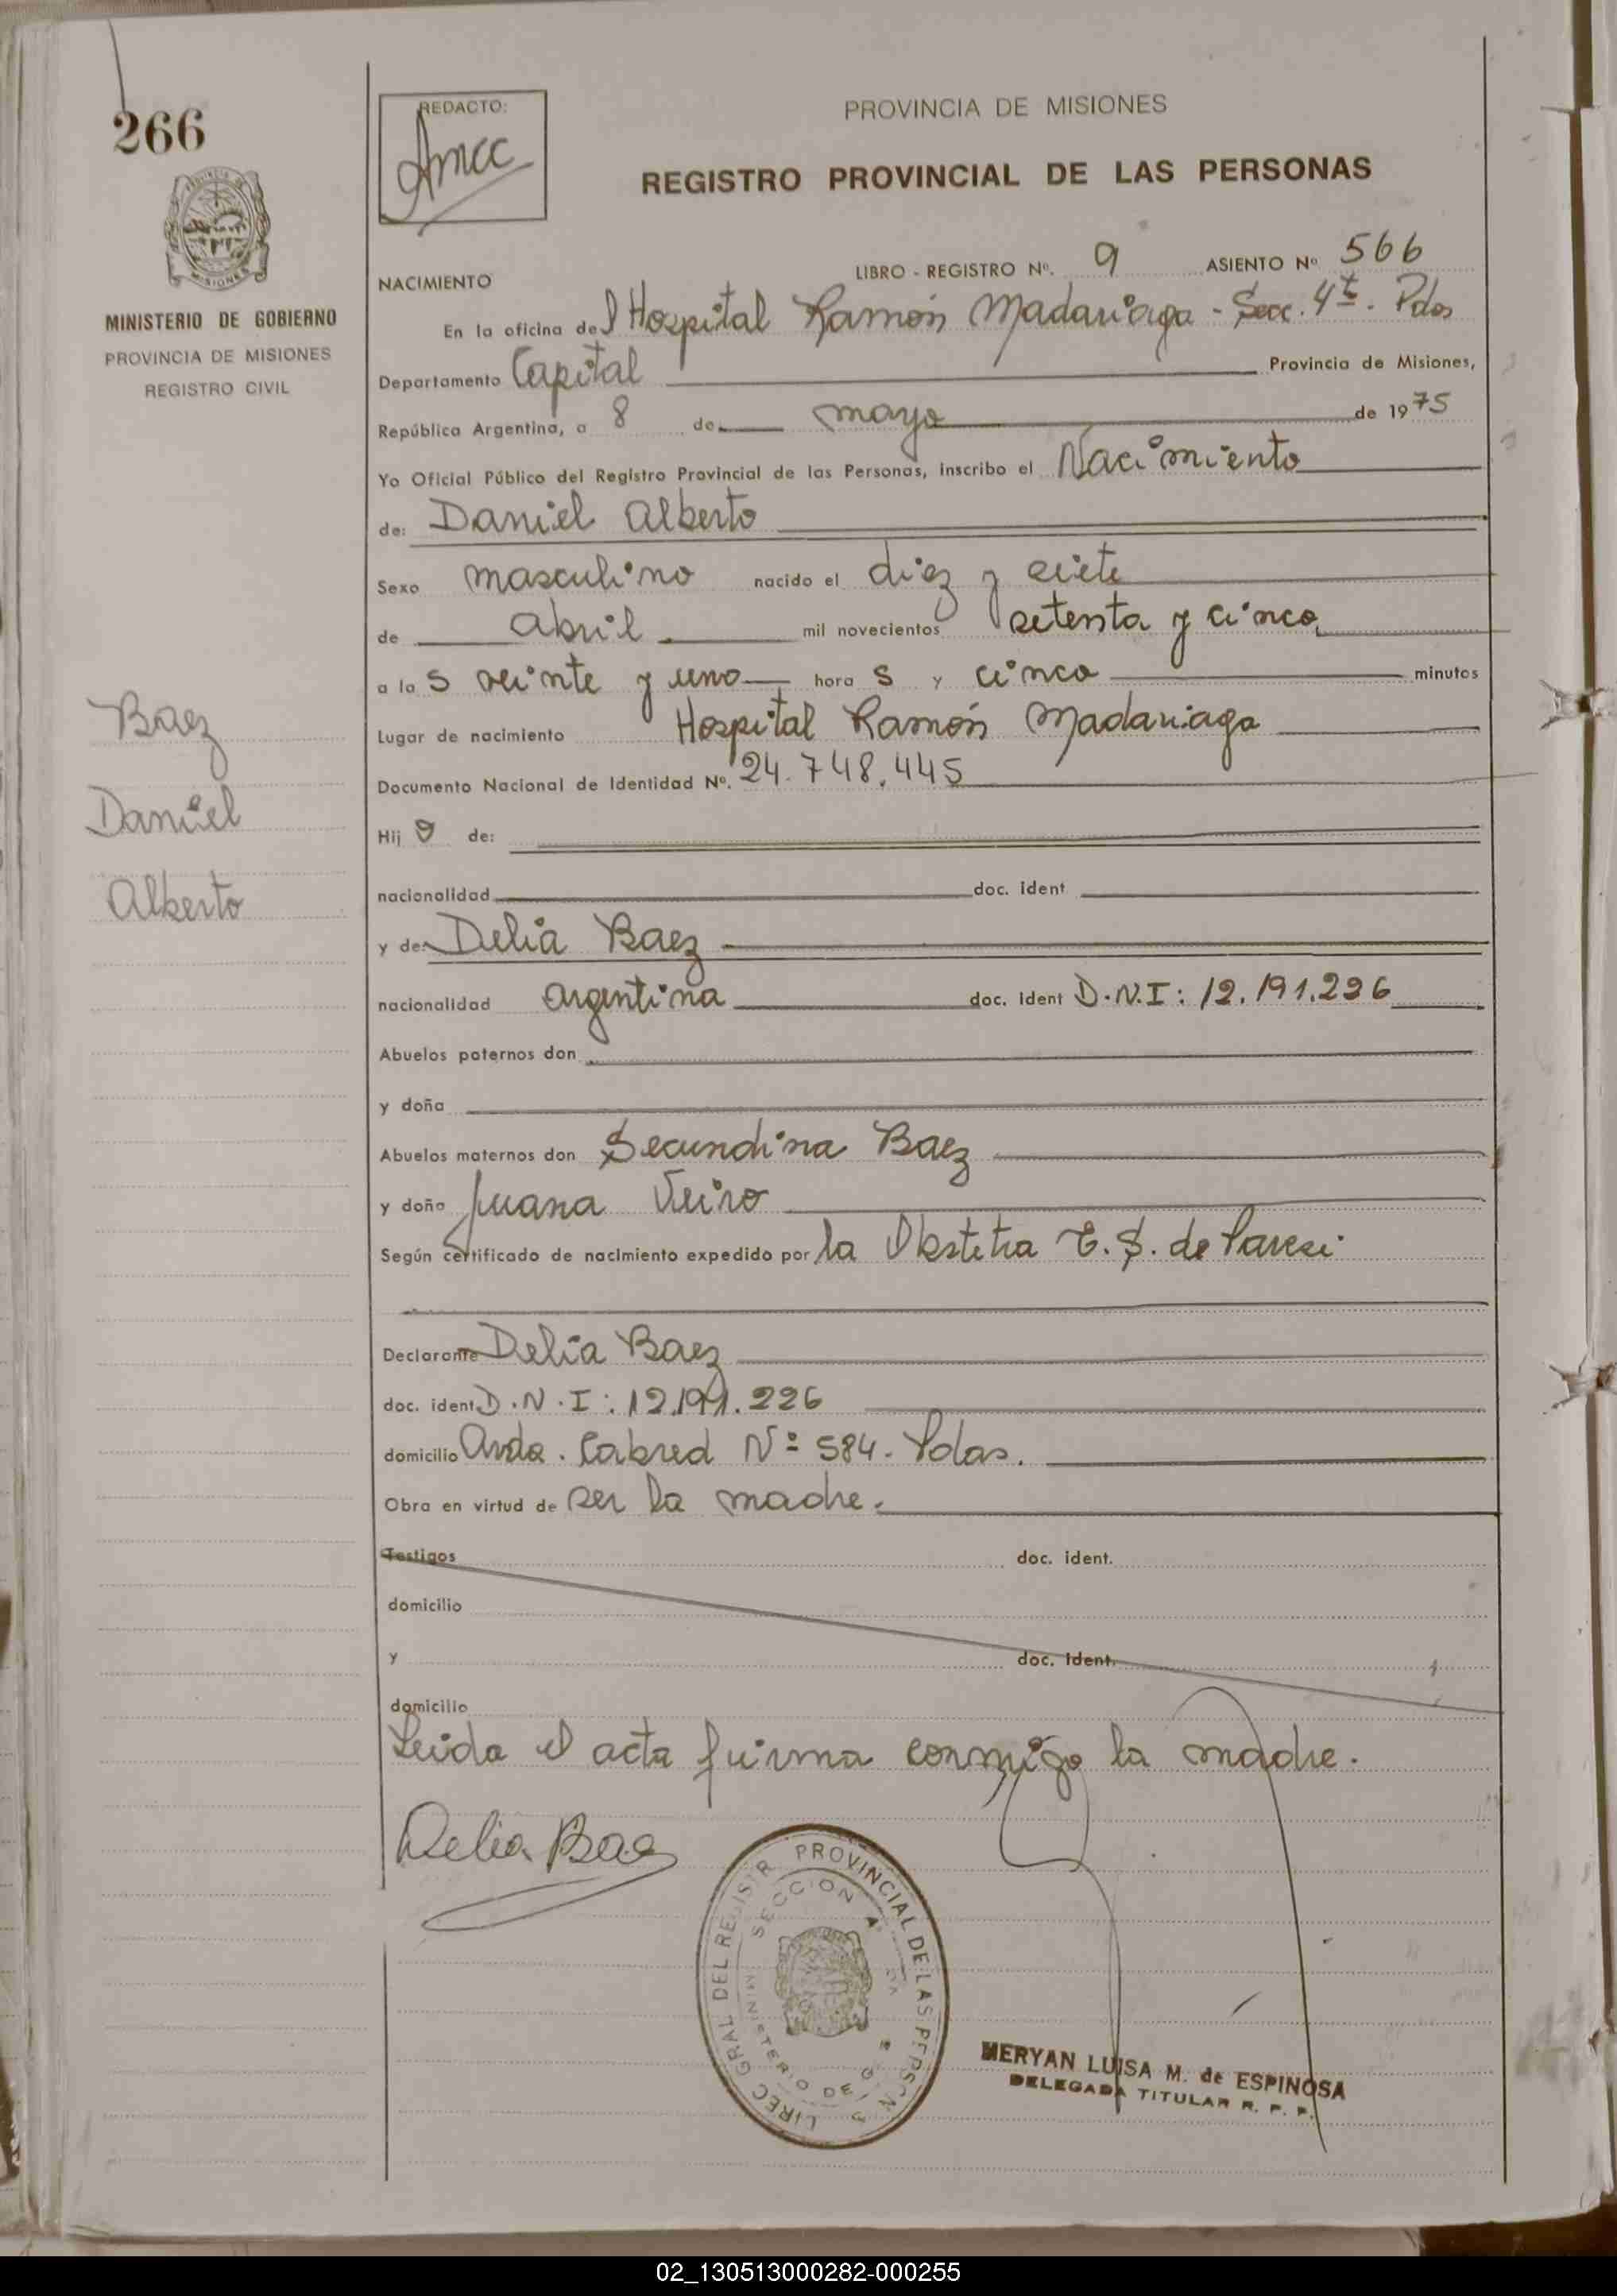 266
REDACTO:
Amcc
PROVINCIA DE MISIONES
REGISTRO PROVINCIAL DE LAS PERSONAS
MISIONES
MINISTERIO DE GOBIERNO
PROVINCIA DE MISIONES
REGISTRO CIVIL
LIBRO - REGISTRO Nº. 9 ASIENTO Nº 566
NACIMIENTO
En la oficina del Hospital Ramón Madariaga - Secc. 4ta. Pdas
Departamento Capital Provincia de Misiones,
República Argentina, a 8 de mayo de 1975
Yo Oficial Público del Registro Provincial de las Personas, inscribo el Nacimiento
de: Daniel Alberto
Sexo masculino nacido el diez y siete
de abril mil novecientos setenta y cinco
a las veinte y uno horas y cinco minutos
Lugar de nacimiento Hospital Ramón Madariaga
Documento Nacional de Identidad Nº. 24.748.445
Baez
Daniel
Alberto
Hijo de:
nacionalidad doc. ident
y de: Delia Baez
nacionalidad argentina doc. ident D.N.I: 12.191.226
Abuelos paternos don
y doña
Abuelos maternos don Secundina Baez
y doña Juana Veiro
Según certificado de nacimiento expedido por la Obstetra E. S. de Paresi
Declarante Delia Baez
doc. ident D.N.I: 12.191.226
domicilio Avda. Cabred Nº 584- Pdas.
Obra en virtud de ser la madre.
Testigos doc. ident.
domicilio
y doc. ident.
domicilio
Leida el acta firma conmigo la madre.
Delia Baez
PROVINCIAL DE LAS
SECCION
MINISTERIO DE
MERYAN LUISA M. de ESPINOSA
DELEGADA TITULAR R. P. P.
02_130513000282-000255